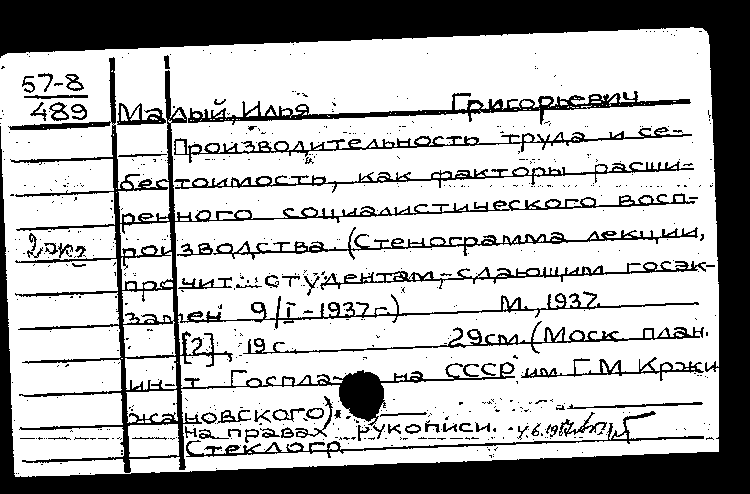 57-8
489
Малый, Илья Григорьевич
Производительность труда и се-
бестоимость, как факторы расши-
ренного социалистического восп-
роизводства. (Стенограмма лекции,
2 экз
прочит. студентам, сдающим госэк-
замен 9/I-1937г.) М., 1937.
[2], 19 с. 29см. (Моск. план.
ин-т Госплана СССР им. Г.М. Кржи
жановского).
на правах рукописи.
Стеклогр.